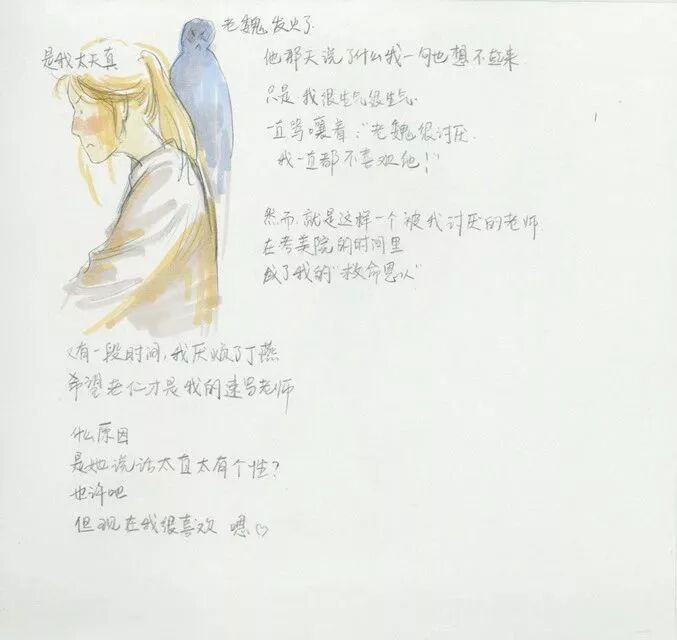 老魏发火了
是我太天真
他那天说了什么我一句也想不起来
只是我很生气很生气
一直骂嚷着:"老魏很讨厌
我一直都不喜欢他!"
然而,就是这样一个被我讨厌的老师
在考美院的时间里
成了我的"救命恩人"
有一段时间,我厌烦了丁燕
希望老仁才是我的速写老师
什么原因
是她说话太直太有个性?
也许吧
但现在我很喜欢 嗯♡